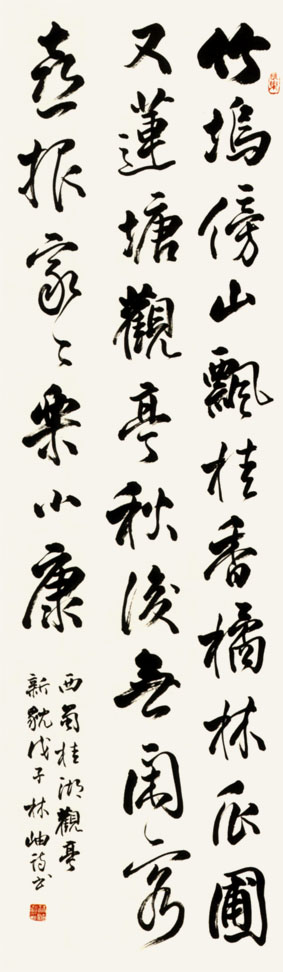 竹塢傍山飄桂香橘林瓜圃
又蓮塘觀亭秋後無閑客
喜報家々樂小康
西蜀桂湖觀亭
新貌戊子林岫詩書